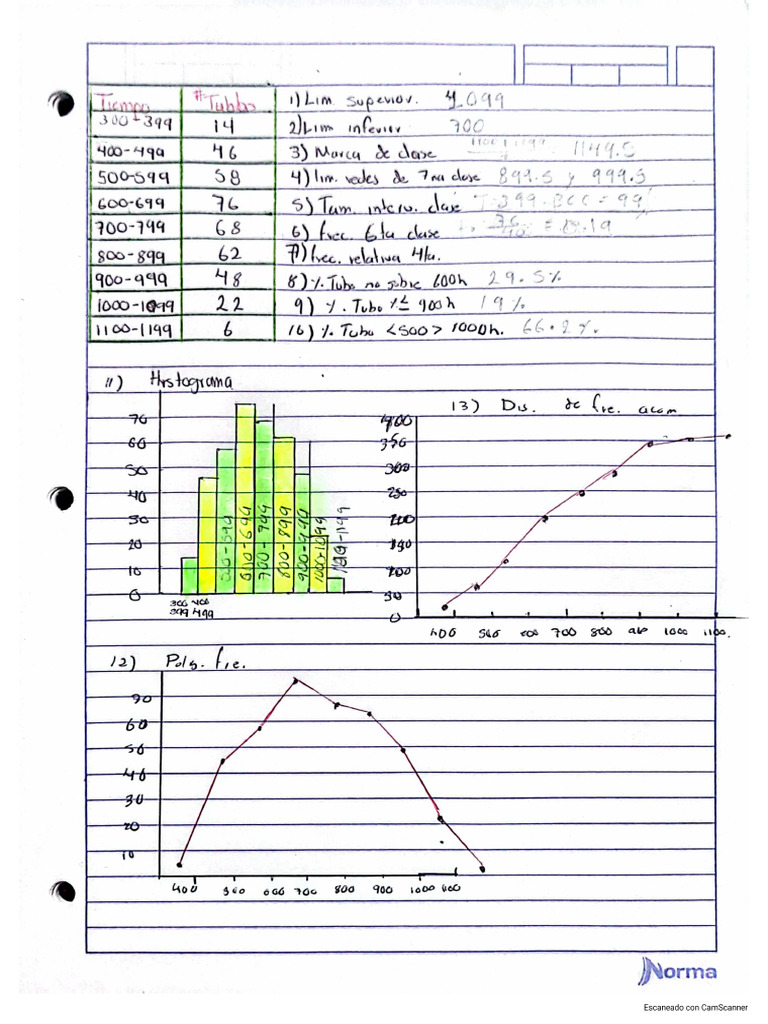 Tiempo #Tubos
300-399 14
400-499 46
500-599 58
600-699 76
700-799 68
800-899 62
900-999 48
1000-1099 22
1100-1199 6
1) Lim superior. 1099
2) Lim inferior 700
3) Marca de clase 1149.5
4) lim. redes de 7ma clase 899.5 y 999.5
5) Tam. interv. clase = 399-300 = 99
6) frec. 6ta clase
7) frec. relativa 4ta. 76/400 = 0.19
8) % Tubo no sobre 600h 29.5%
9) % Tubo ≤ 900h 19%
10) % Tubo <500> 1000h. 66.2%
11) Histograma
70
60
50
40
30
20
10
0
300 400
399 499
500-599
600-699
700-799
800-899
900-990
1000-1099
1100-1199
13) Dis. de fre. acom
400
350
300
250
200
150
100
50
0
400 500 600 700 800 900 1000 1100.
12) Polg. fre.
70
60
50
40
30
20
10
400 500 600 700 800 900 1000
Norma
Escaneado con CamScanner